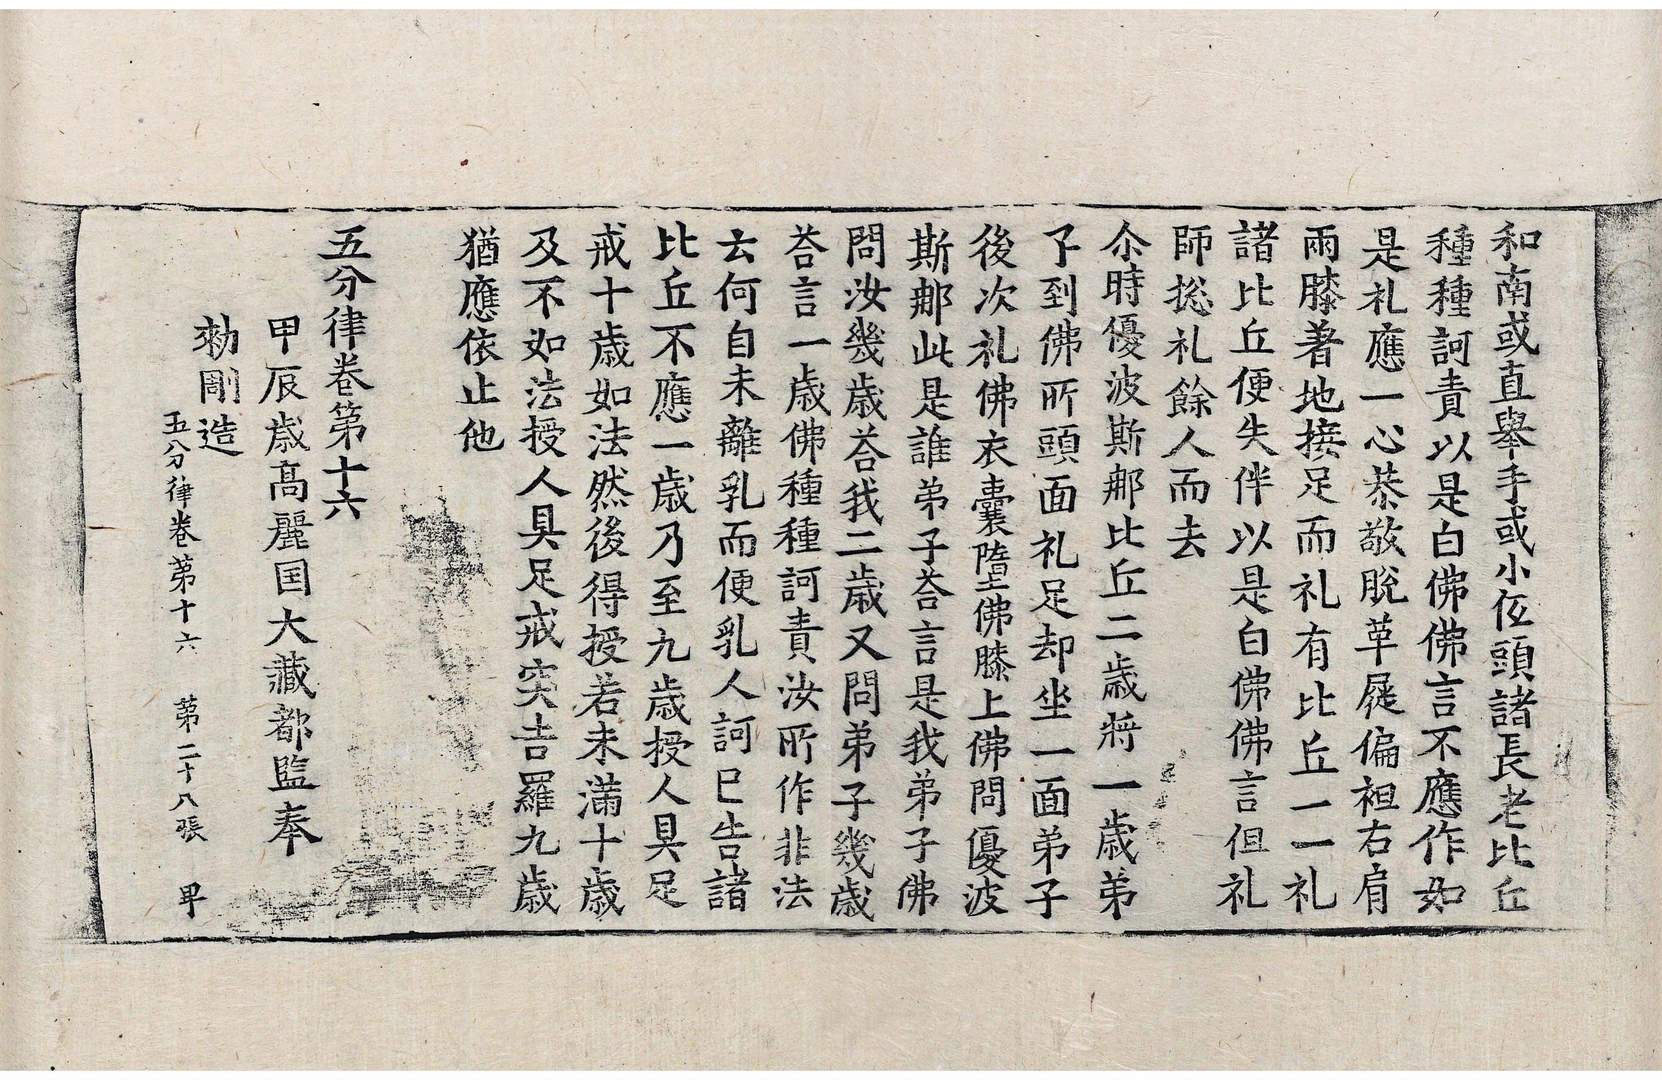 和南或直舉手或小伍頭諸長老比丘
種種訶責以是白佛佛言不應作如
是礼應一心恭敬脫革屣偏袒右肩
兩膝著地接足而礼有比丘一一礼
諸比丘便失伴以是白佛佛言但礼
師捴礼餘人而去
尒時優波斯那比丘二歲將一歲弟
子到佛所頭面礼足却坐一面弟子
後次礼佛衣囊墮佛膝上佛問優波
斯那此是誰弟子荅言是我弟子佛
問汝幾歲荅我二歲又問弟子幾歲
荅言一歲佛種種訶責汝所作非法
云何自未離乳而便乳人訶已告諸
比丘不應一歲乃至九歲授人具足
戒十歲如法然後得授若未滿十歲
及不如法授人具足戒突吉羅九歲
猶應依止他
五分律卷第十六
甲辰歲高麗国大藏都監奉
勑彫造
五分律卷第十六 第二十八張 甲